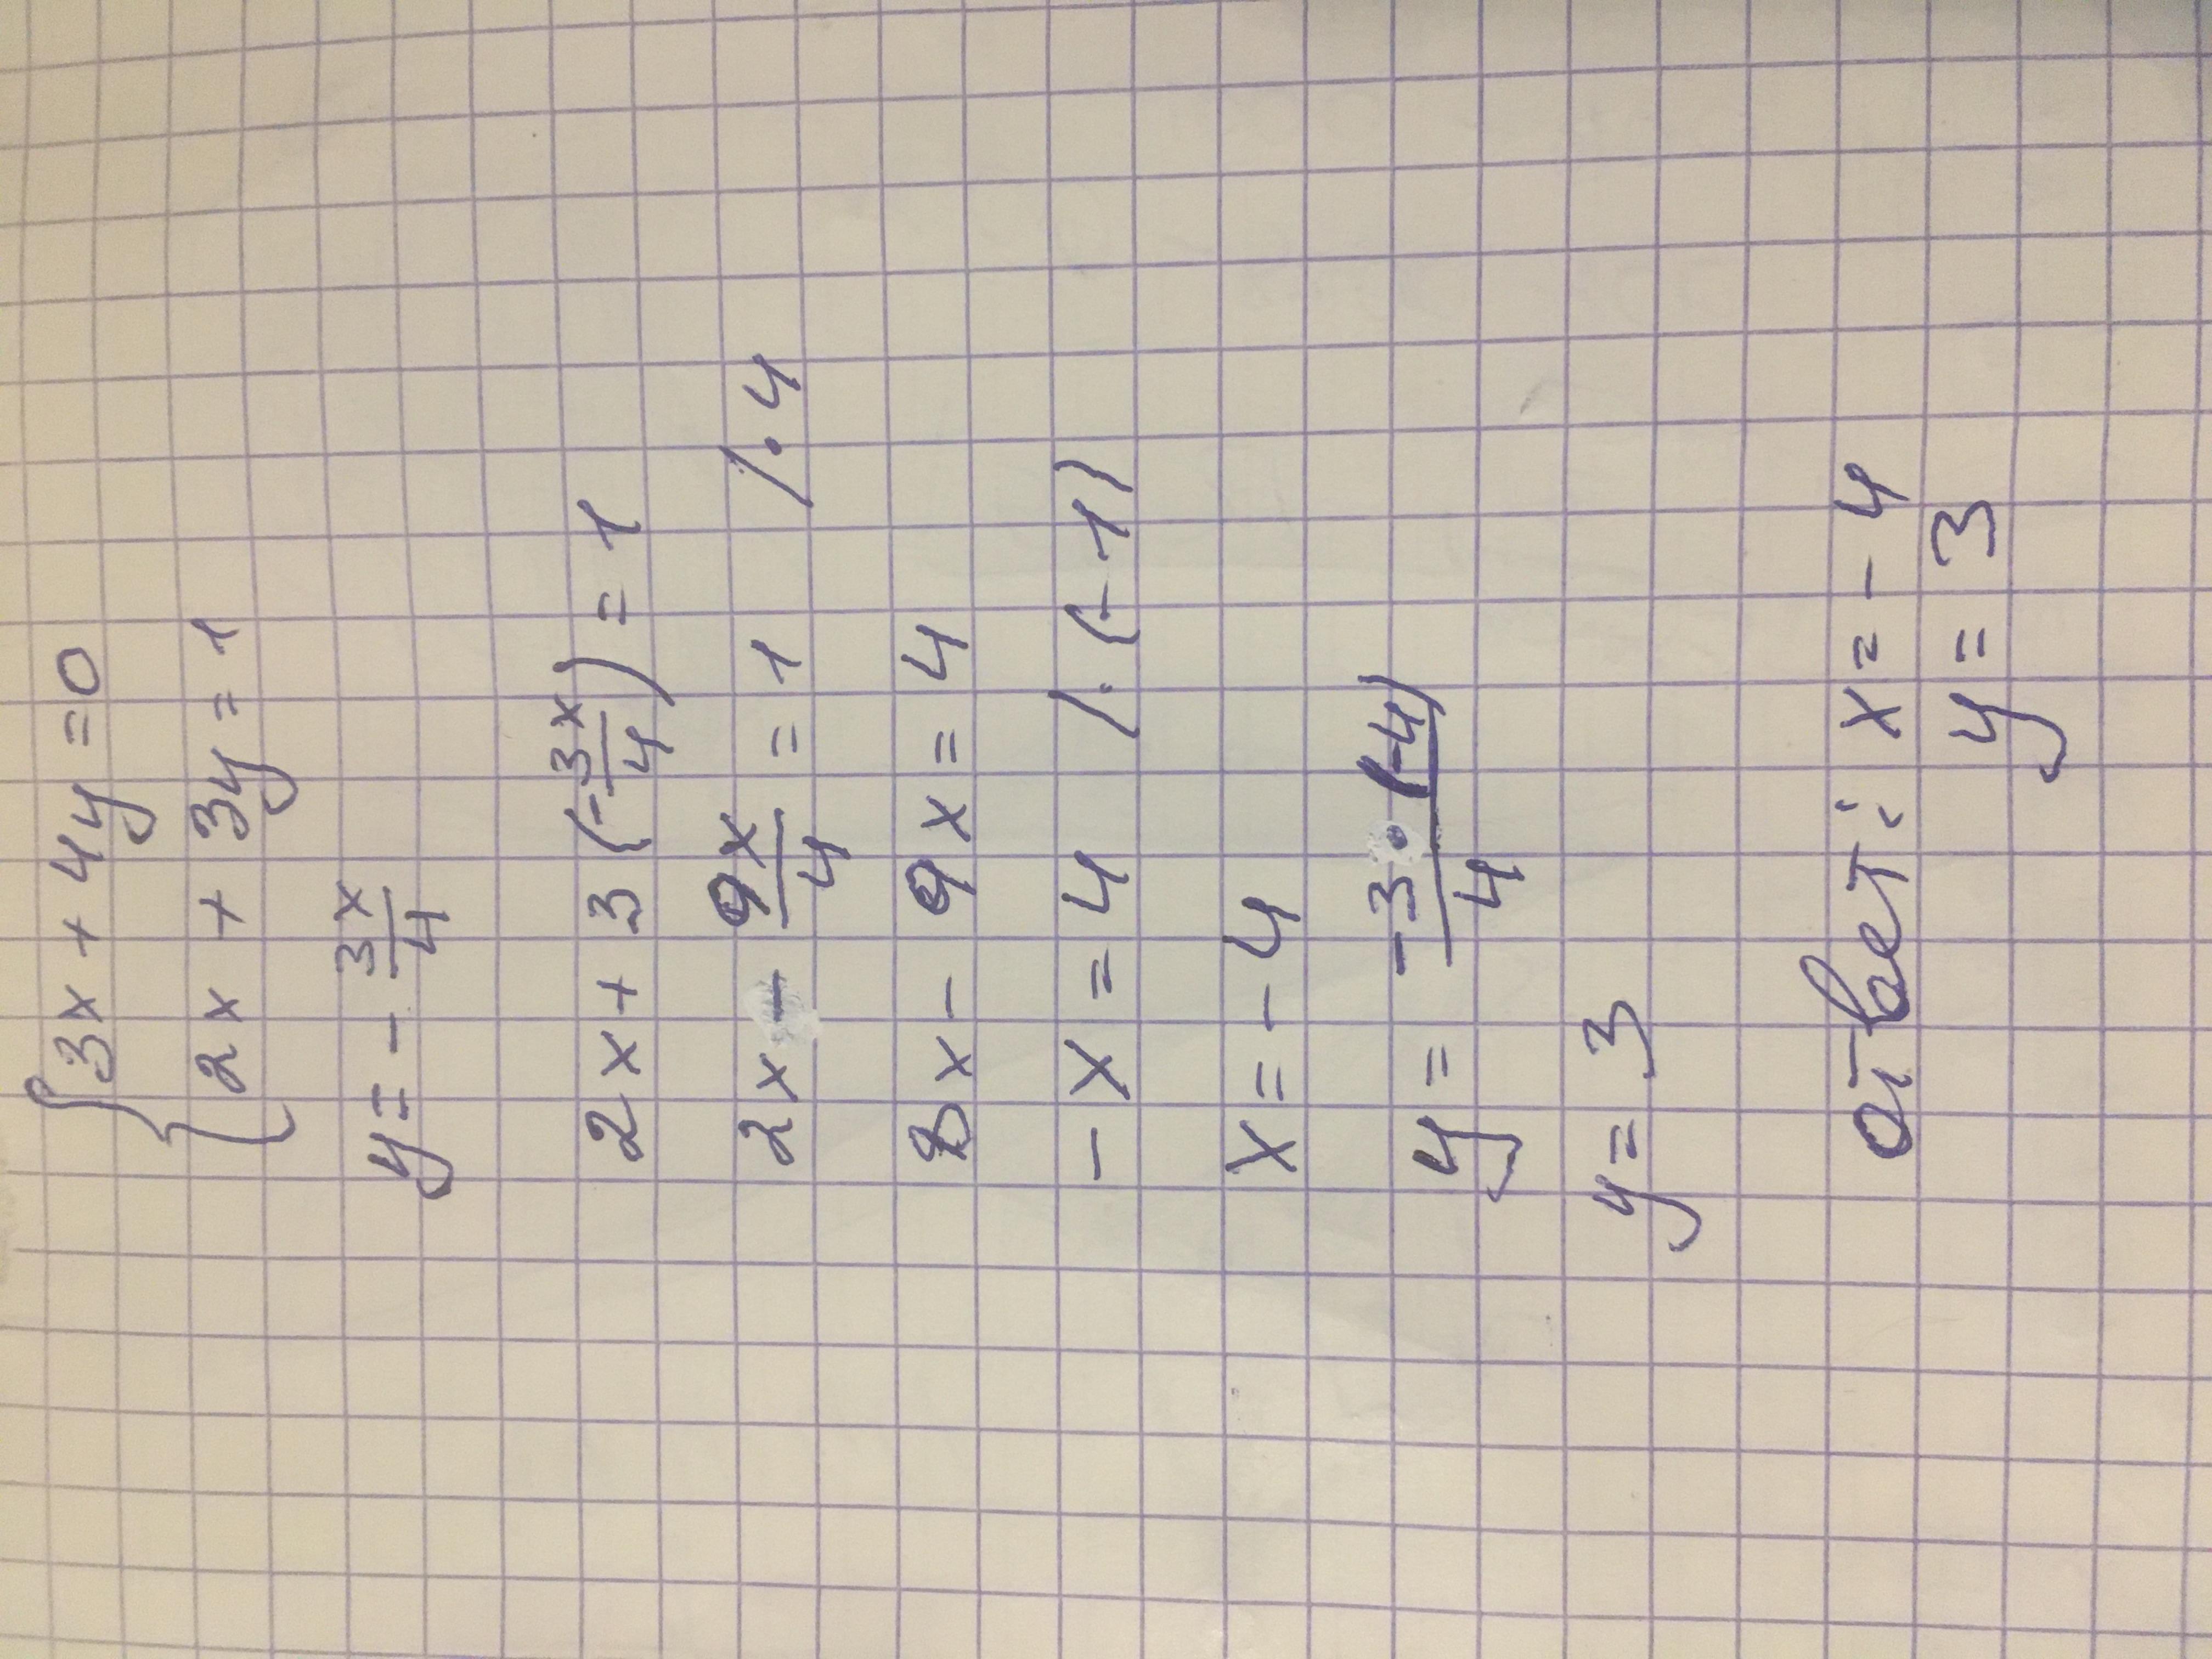 {3x + 4y = 0
{2x + 3y = 1
y = - 3x/4
2x + 3(-3x/4) = 1
2x - 9x/4 = 1 /·4
8x - 9x = 4
-x = 4 /·(-1)
x = -4
y = -3·(-4)/4
y = 3
ответ: x = -4
y = 3